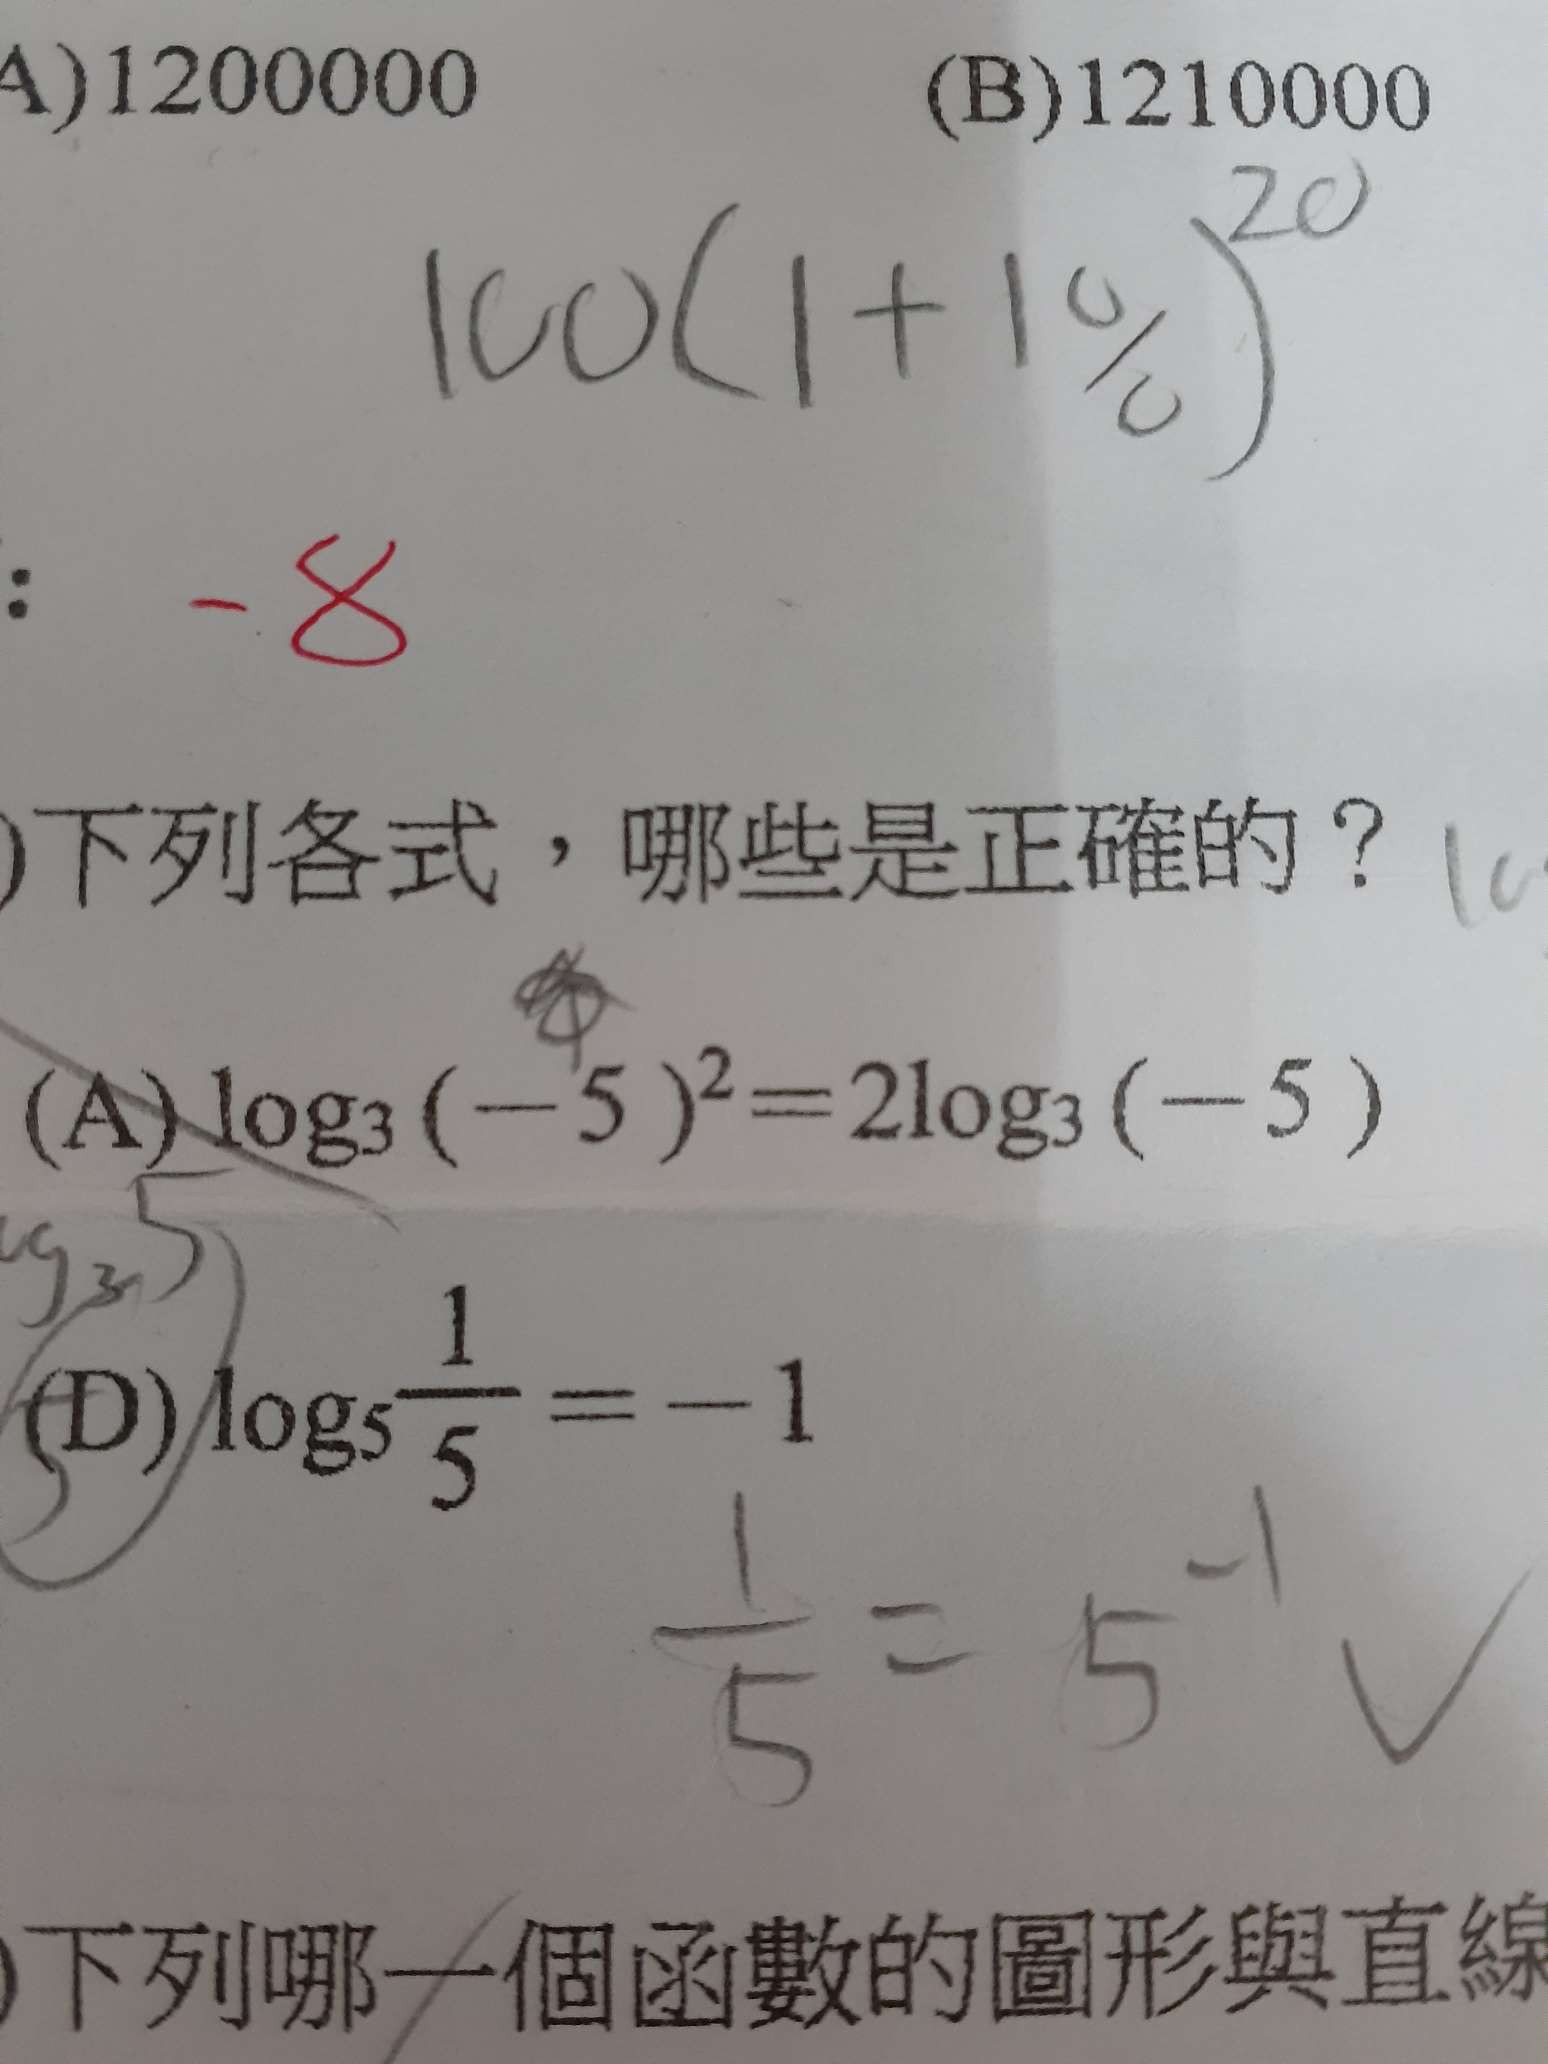 A)1200000 (B)1210000
100(1+1%)²⁰
: -8
)下列各式，哪些是正確的？
(A) log₃(－5)²＝2log₃(－5)
5
(D) log₅ 1/5 ＝－1
1/5 = 5⁻¹ ✓
)下列哪一個函數的圖形與直線